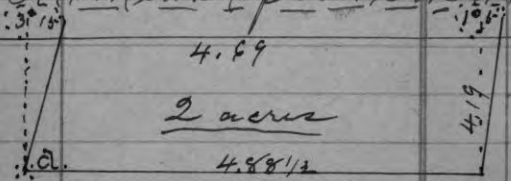 3° 15' 1° 5'
4.69
2 acres
4.19
a. 4.88 1/2